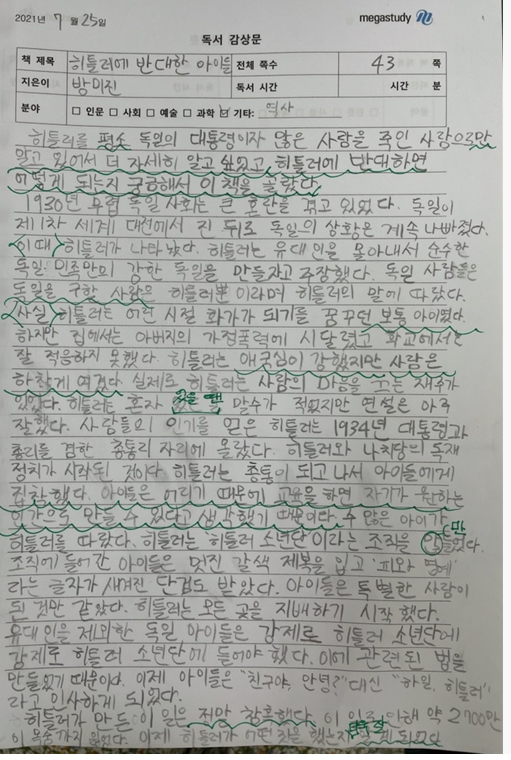 2021년 7월 25일 megastudy 1
독서 감상문
책 제목 히틀러에 반대한 아이들 전체 쪽수 43 쪽
지은이 방미진 독서 시간 시간 분
분야 □ 인문 □ 사회 □ 예술 □ 과학 ☑ 기타: 역사
히틀러를 평소 독일의 대통령이자 많은 사람을 죽인 사람으로만
알고 있어서 더 자세히 알고 싶었고, 히틀러에 반대하면
어떻게 되는지 궁금해서 이 책을 골랐다.
1930년 무렵 독일 사회는 큰 혼란을 겪고 있었다. 독일이
제1차 세계 대전에서 진 뒤로 독일의 상황은 계속 나빠졌다.
이때 히틀러가 나타났다. 히틀러는 유대인을 몰아내서 순수한
독일 민족만의 강한 독일을 만들자고 주장했다. 독일 사람들은
독일을 구할 사람은 히틀러뿐이라며 히틀러의 말에 따랐다.
사실 히틀러는 어린 시절 화가가 되기를 꿈꾸던 보통 아이였다.
하지만 집에서는 아버지의 가정폭력에 시달렸고 학교에서는
잘 적응하지 못했다. 히틀러는 애국심이 강했지만 사람은
하찮게 여겼다. 실제로 히틀러는 사람의 마음을 끄는 재주가
있었다. 히틀러는 혼자 있을 땐 말수가 적었지만 연설은 아주
잘했다. 사람들의 인기를 얻은 히틀러는 1934년 대통령과
총리를 겸한 총통리 자리에 올랐다. 히틀러와 나치당의 독재
정치가 시작된 것이다. 히틀러는 총통이 되고 나서 아이들에게
집착했다. 아이들은 어리기 때문에 교육을 하면 자기가 원하는
인간으로 만들 수 있다고 생각했기 때문이다. 수 많은 아이가
히틀러를 따랐다. 히틀러는 '히틀러 소년단'이라는 조직을 만들었다.
조직에 들어간 아이들은 멋진 갈색 제복을 입고 '피와 명예'
라는 글자가 새겨진 단검도 받았다. 아이들은 특별한 사람이
된 것만 같았다. 히틀러는 모든 곳을 지배하기 시작했다.
유대인을 제외한 독일 아이들은 강제로 히틀러 소년단에
강제로 히틀러 소년단에 들어야 했다. 이에 관련된 법을
만들었기 때문이다. 이제 아이들은 "친구야, 안녕?" 대신 "하일, 히틀러"
라고 인사하게 되었다.
히틀러가 만든 이 일은 정말 참혹했다. 이 일로 인해 약 2700만
이 목숨까지 잃었다. 이제 히틀러가 어떤 짓을 했는지 알게 되었고